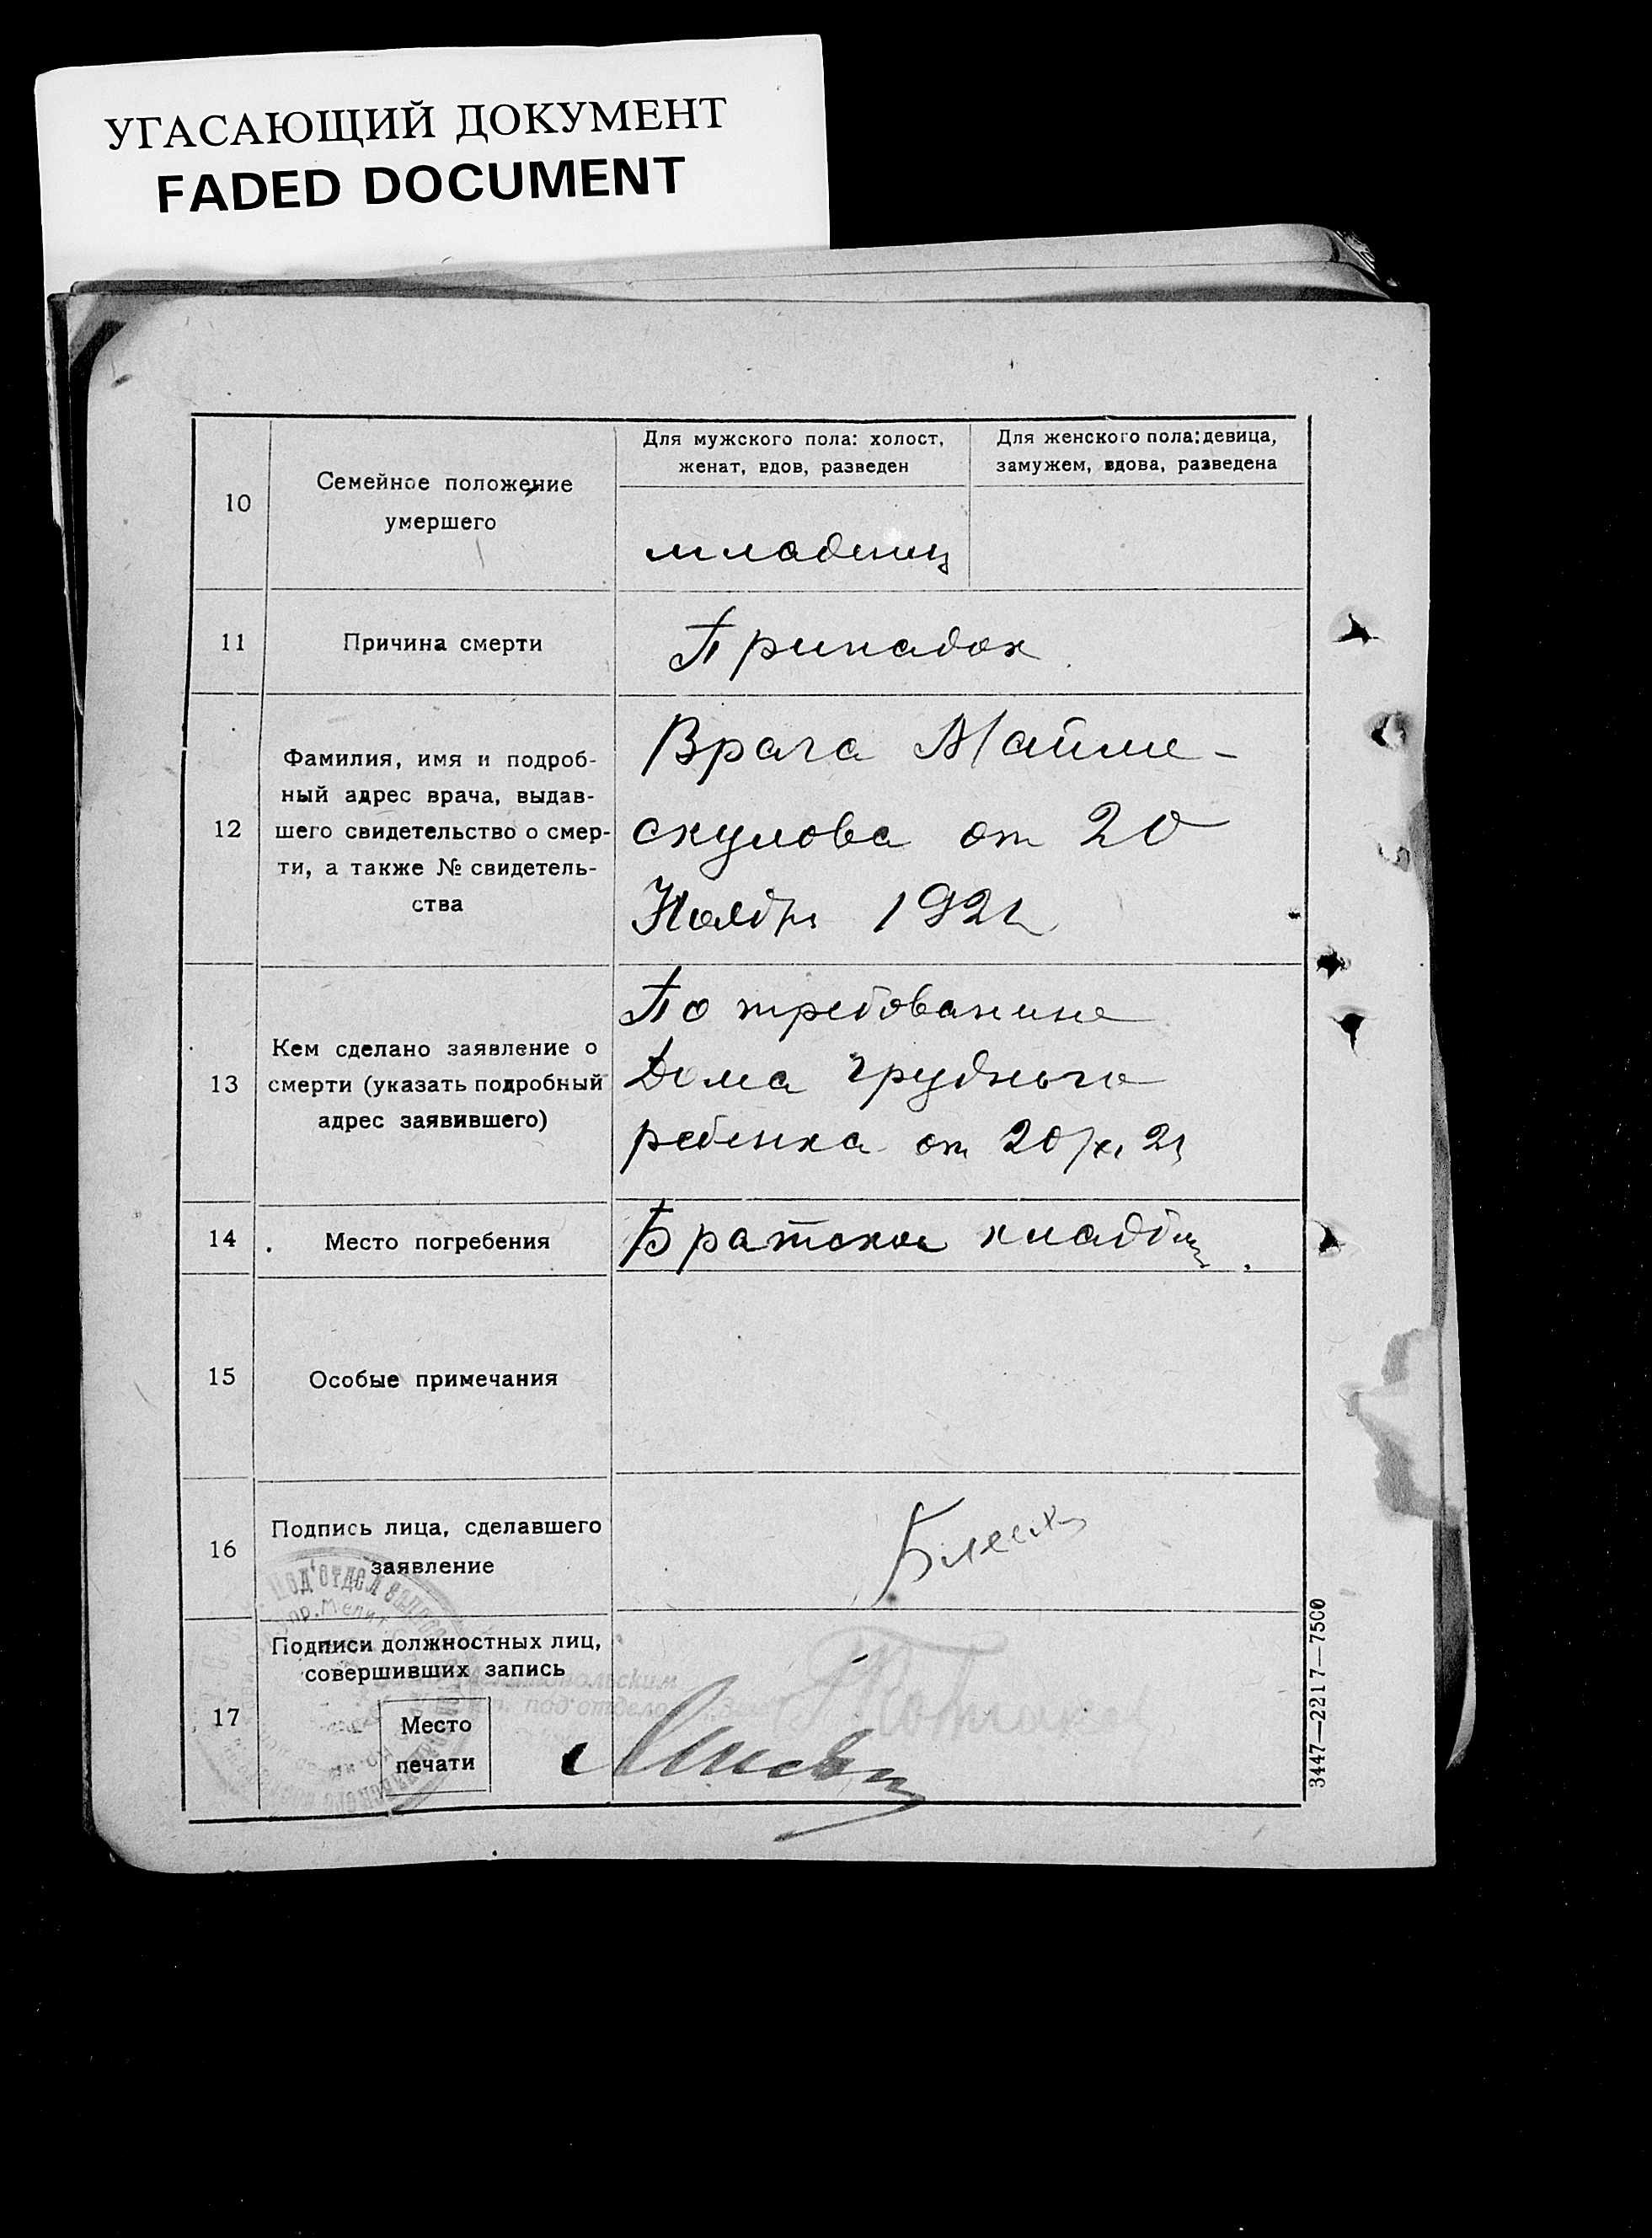 УГАСАЮЩИЙ ДОКУМЕНТ
FADED DOCUMENT
Для мужского пола: холост,
женат, вдов, разведен
Для женского пола: девица,
замужем, вдова, разведена
10
Семейное положение
умершего
младенец
11
Причина смерти
Припадок
12
Фамилия, имя и подроб-
ный адрес врача, выдав-
шего свидетельство о смер-
ти, а также № свидетель-
ства
Врача Майме-
скулова от 20
Ноябр 1921
13
Кем сделано заявление о
смерти (указать подробный
адрес заявившего)
По требованию
Дома грудного
ребенка от 20/XI 21
14
Место погребения
Братское кладбищ.
15
Особые примечания
16
Подпись лица, сделавшего
заявление
17
Подписи должностных лиц,
совершивших запись
Место
печати
Под'отдел
под'отдело
3447—2217—7500